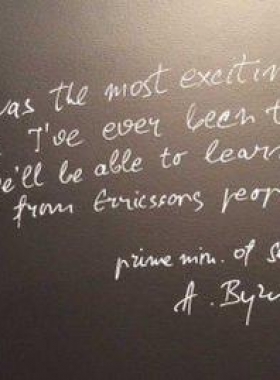 was the most excitin
I've ever been t
e'll be able to learn
from Ericssons peop
prime min. of s
A. Byr